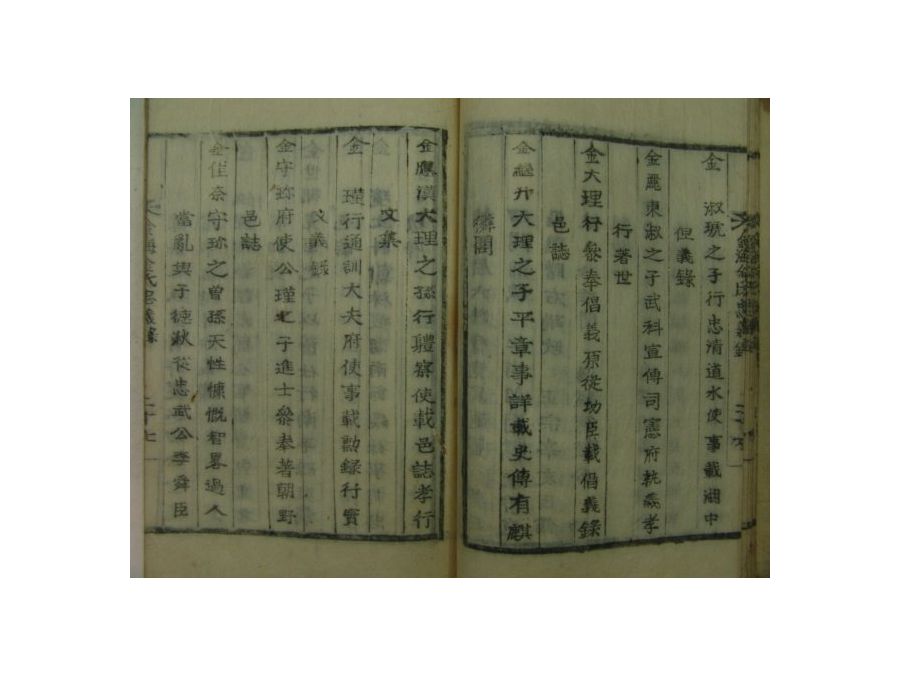 金 淑琥之子行忠清道水使事載湖中
倡義錄
金麗東淑之子武科宣傳司憲府執義孝
行著世
金大理行叅奉倡義原從功臣載倡義錄
邑誌
金 大理之子平章事詳載史傳有麒
麟閣
金應漢大理之孫行體察使載邑誌孝行
文集
金 璂行通訓大夫府使事載勳錄行實
義錄
金守珎府使公瑾之子進士叅奉著朝野
邑誌
金 奈守珎之曽孫天性慷慨智畧過人
當亂與子德秋從忠武公李舜臣
金海金氏忠義錄
二十七